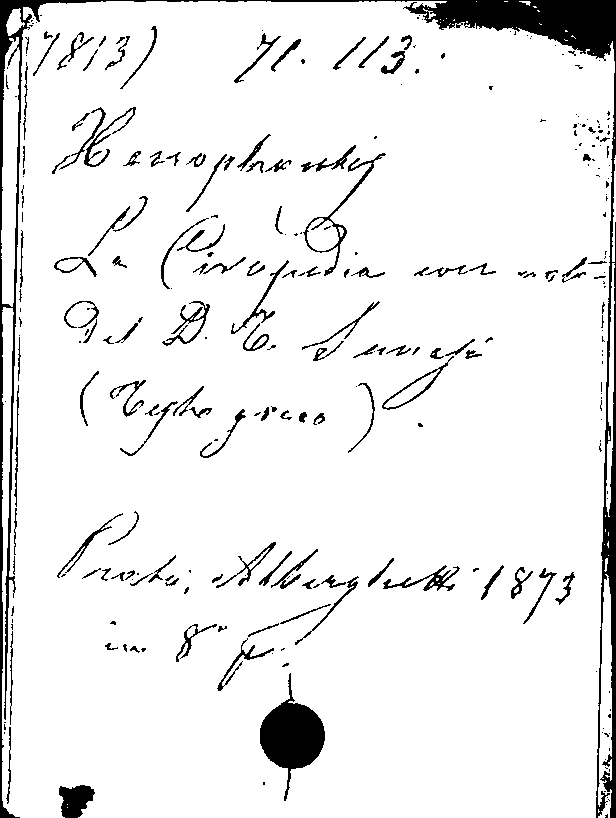 (7813) 71. 113.
Xenophontis
La Ciropedia con note
del D. T. Sunesi
(Testo greco).
Prato, Alberghetti 1873
in 8° p.